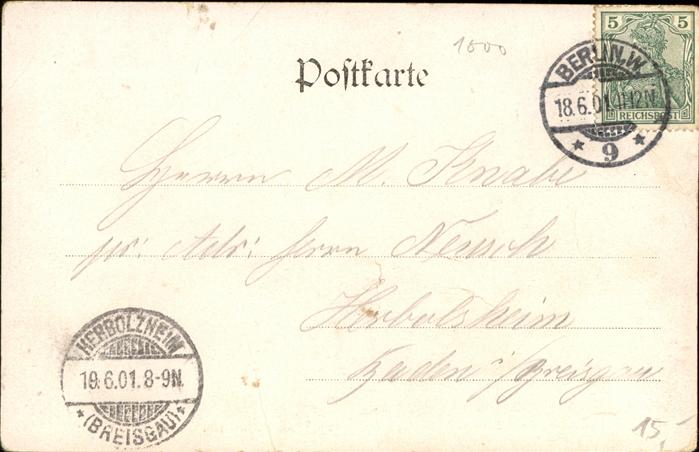 1800
5 5
REICHSPOST
BERLIN.W.
18.6.01.11-12N.
* 9 *
Postkarte
Herrn M. Knabe
pr. Adr. Herrn Neusch
Herbolsheim
Baden i/Breisgau
HERBOLZHEIM
19.6.01.8-9N.
*(BREISGAU)*
15,-